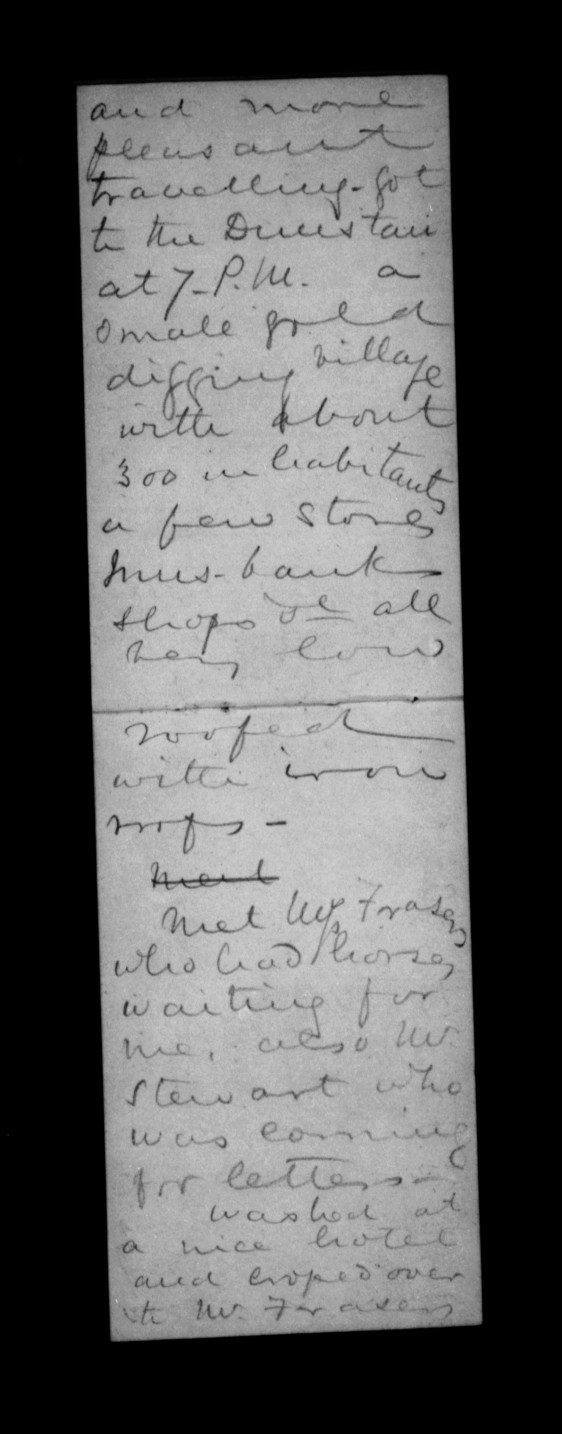 and more
pleasant
travelling - got
to the Dunstan
at 7 - P.M. a
small gold
digging village
with about
300 inhabitants
a few stores
Inns - banks
shops &c all
very low
roofed
with iron
roofs -
Met Mr Frasers
who had horses
waiting for
me, also Mr.
Stewart who
was coming
for letters -
washed at
a nice hotel
and croped over
to Mr. Frasers